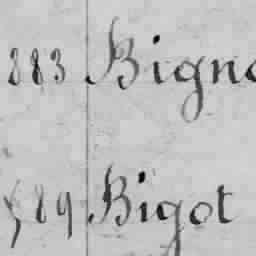 883 Bigno
589 Bigot